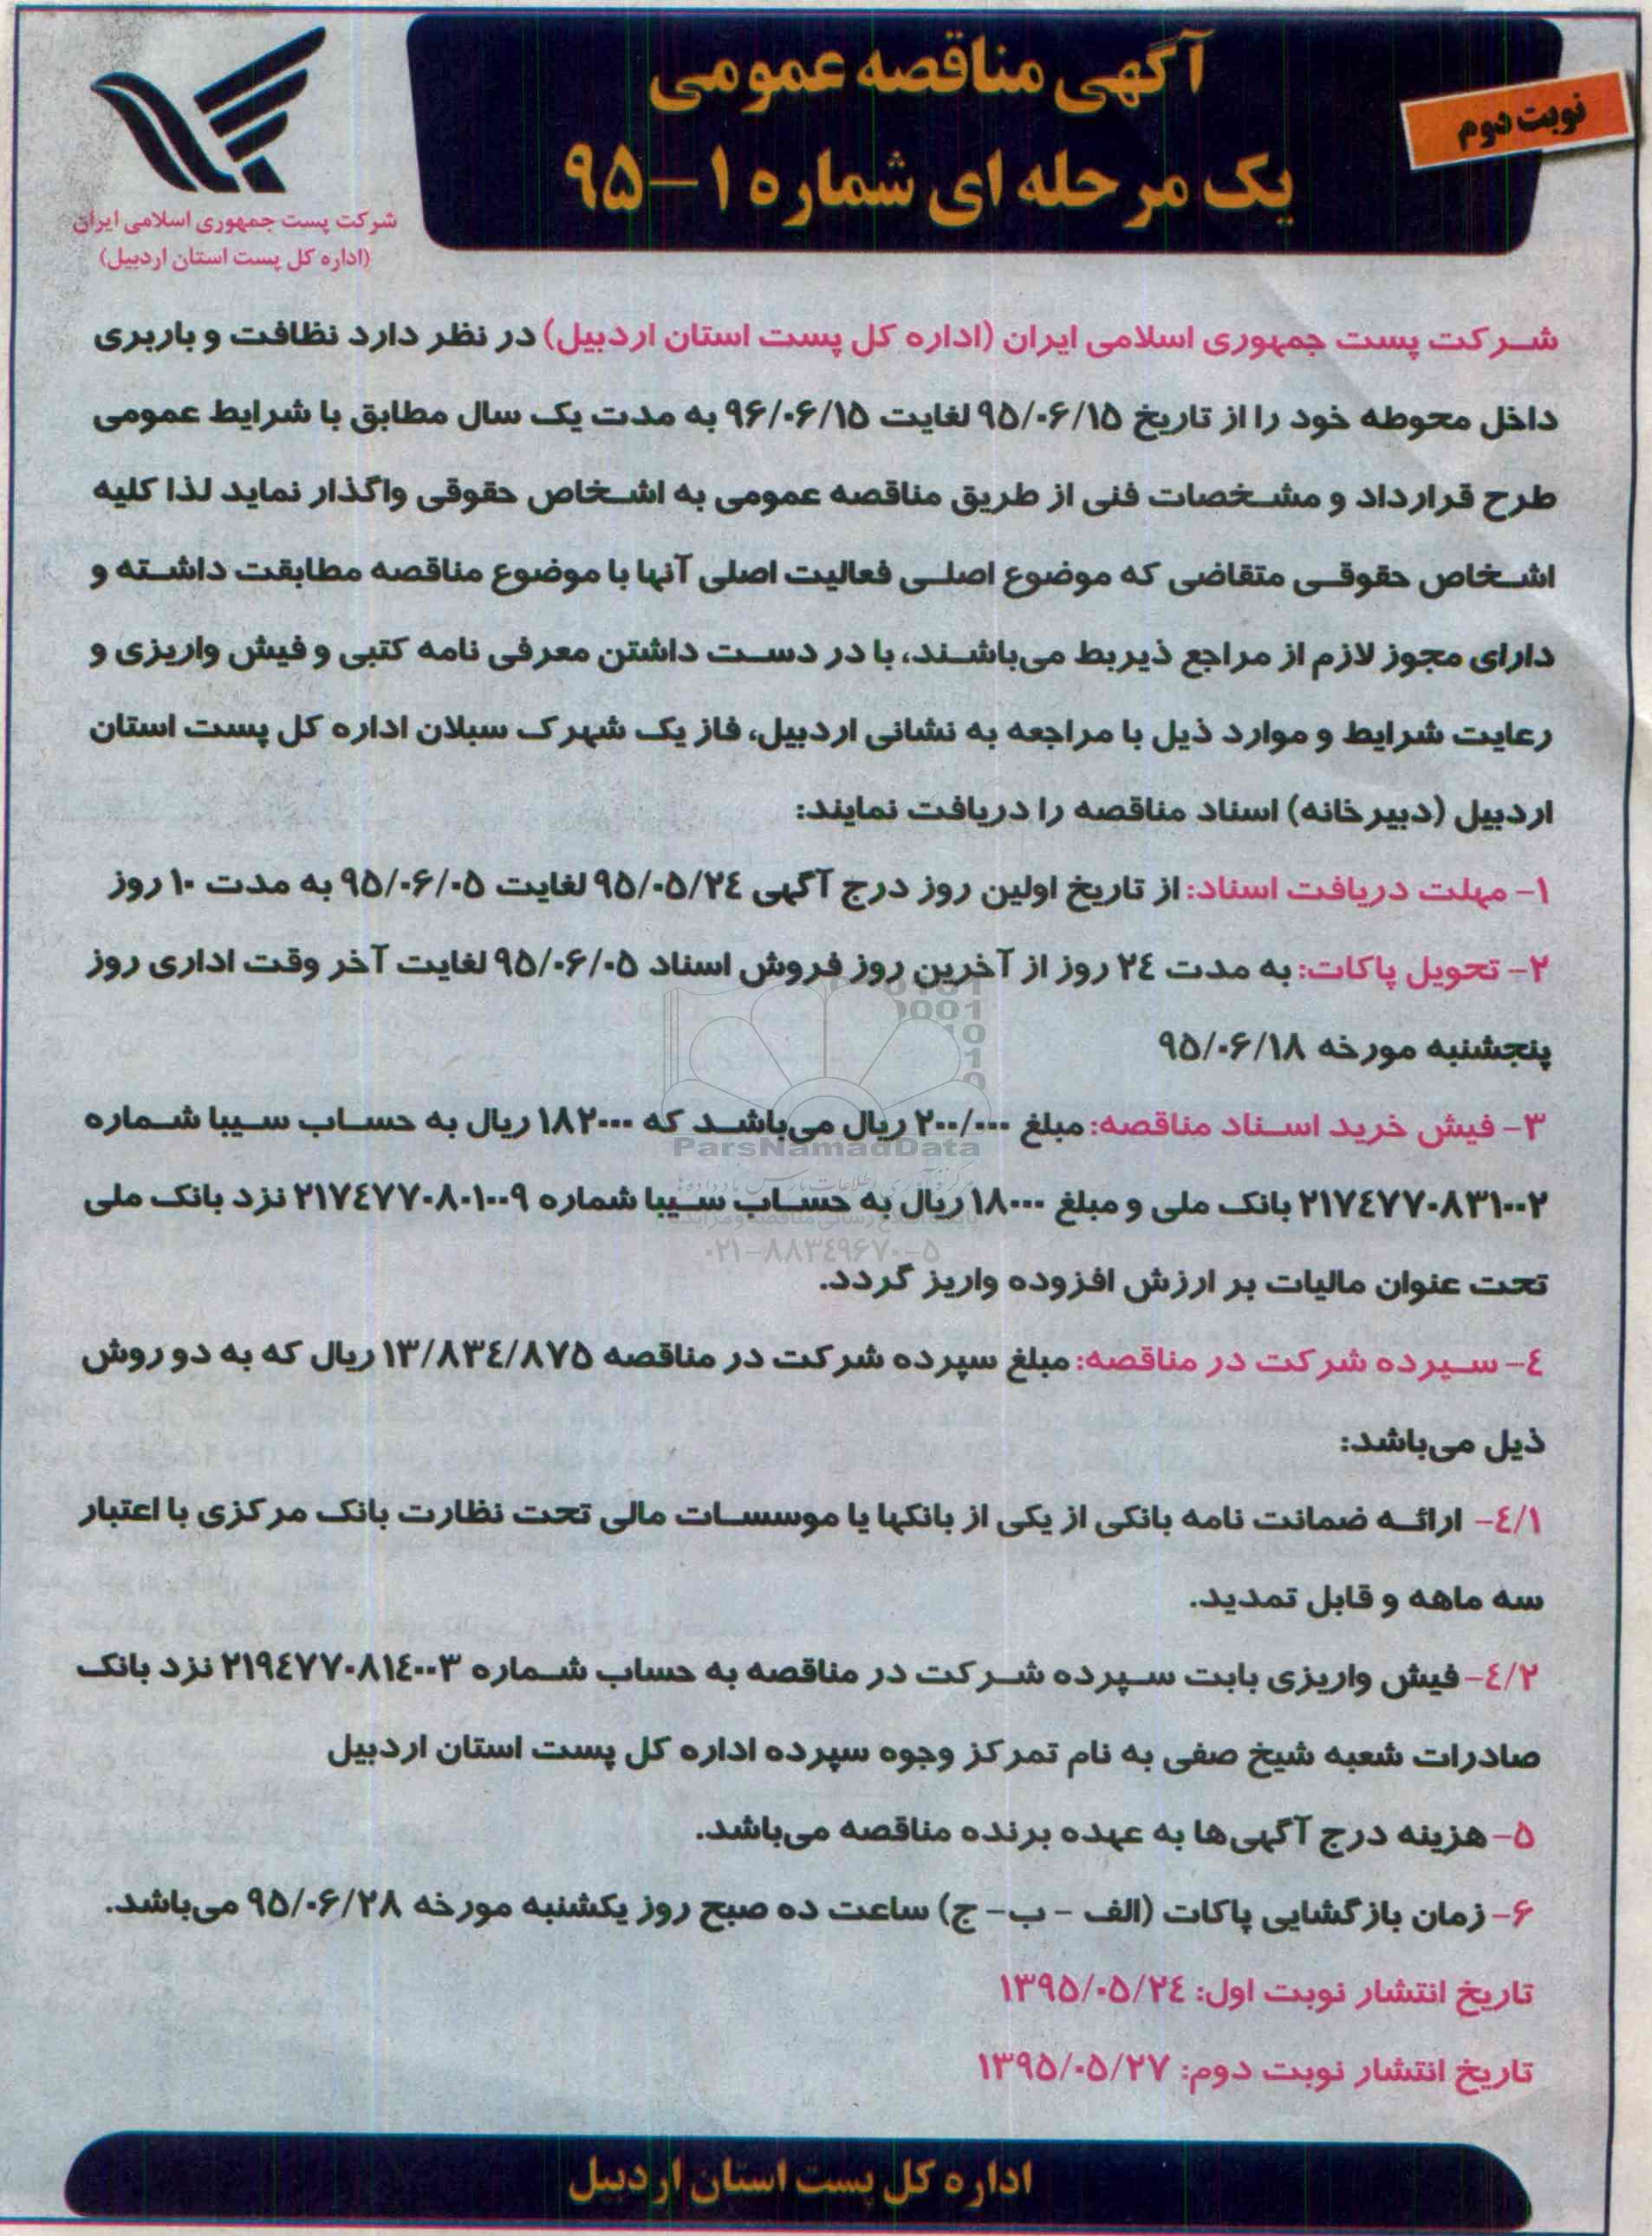 آگهی مناقصه عمومی
یک مرحله ای شماره ۱–۹۵
نوبت دوم
شرکت پست جمهوری اسلامی ایران
(اداره کل پست استان اردبیل)
شرکت پست جمهوری اسلامی ایران (اداره کل پست استان اردبیل) در نظر دارد نظافت و باربری
داخل محوطه خود را از تاریخ ۹۵/۰۶/۱۵ لغایت ۹۶/۰۶/۱۵ به مدت یک سال مطابق با شرایط عمومی
طرح قرارداد و مشخصات فنی از طریق مناقصه عمومی به اشخاص حقوقی واگذار نماید لذا کلیه
اشخاص حقوقی متقاضی که موضوع اصلی فعالیت اصلی آنها با موضوع مناقصه مطابقت داشته و
دارای مجوز لازم از مراجع ذیربط می‌باشند، با در دست داشتن معرفی نامه کتبی و فیش واریزی و
رعایت شرایط و موارد ذیل با مراجعه به نشانی اردبیل، فاز یک شهرک سبلان اداره کل پست استان
اردبیل (دبیرخانه) اسناد مناقصه را دریافت نمایند:
۱- مهلت دریافت اسناد: از تاریخ اولین روز درج آگهی ۹۵/۰۵/۲۴ لغایت ۹۵/۰۶/۰۵ به مدت ۱۰ روز
۲- تحویل پاکات: به مدت ۲۴ روز از آخرین روز فروش اسناد ۹۵/۰۶/۰۵ لغایت آخر وقت اداری روز
پنجشنبه مورخه ۹۵/۰۶/۱۸
۳- فیش خرید اسناد مناقصه: مبلغ ۲۰۰/۰۰۰ ریال می‌باشد که ۱۸۲۰۰۰ ریال به حساب سیبا شماره
۲۱۷٤۷۷۰۸۳۱۰۰۲ بانک ملی و مبلغ ۱۸۰۰۰ ریال به حساب سیبا شماره ۲۱۷٤۷۷۰۸۰۱۰۰۹ نزد بانک ملی
تحت عنوان مالیات بر ارزش افزوده واریز گردد.
٤- سپرده شرکت در مناقصه: مبلغ سپرده شرکت در مناقصه ۱۳/۸۳٤/۸۷۵ ریال که به دو روش
ذیل می‌باشد:
٤/۱- ارائه ضمانت نامه بانکی از یکی از بانکها یا موسسات مالی تحت نظارت بانک مرکزی با اعتبار
سه ماهه و قابل تمدید.
٤/۲- فیش واریزی بابت سپرده شرکت در مناقصه به حساب شماره ۲۱۹٤۷۷۰۸۱٤۰۰۳ نزد بانک
صادرات شعبه شیخ صفی به نام تمرکز وجوه سپرده اداره کل پست استان اردبیل
۵- هزینه درج آگهی‌ها به عهده برنده مناقصه می‌باشد.
۶- زمان بازگشایی پاکات (الف - ب- ج) ساعت ده صبح روز یکشنبه مورخه ۹۵/۰۶/۲۸ می‌باشد.
تاریخ انتشار نوبت اول: ۱۳۹۵/۰۵/۲٤
تاریخ انتشار نوبت دوم: ۱۳۹۵/۰۵/۲۷
اداره کل پست استان اردبیل
ParsNamadData
۰۲۱-۸۸۳٤۹۶۷۰-۵